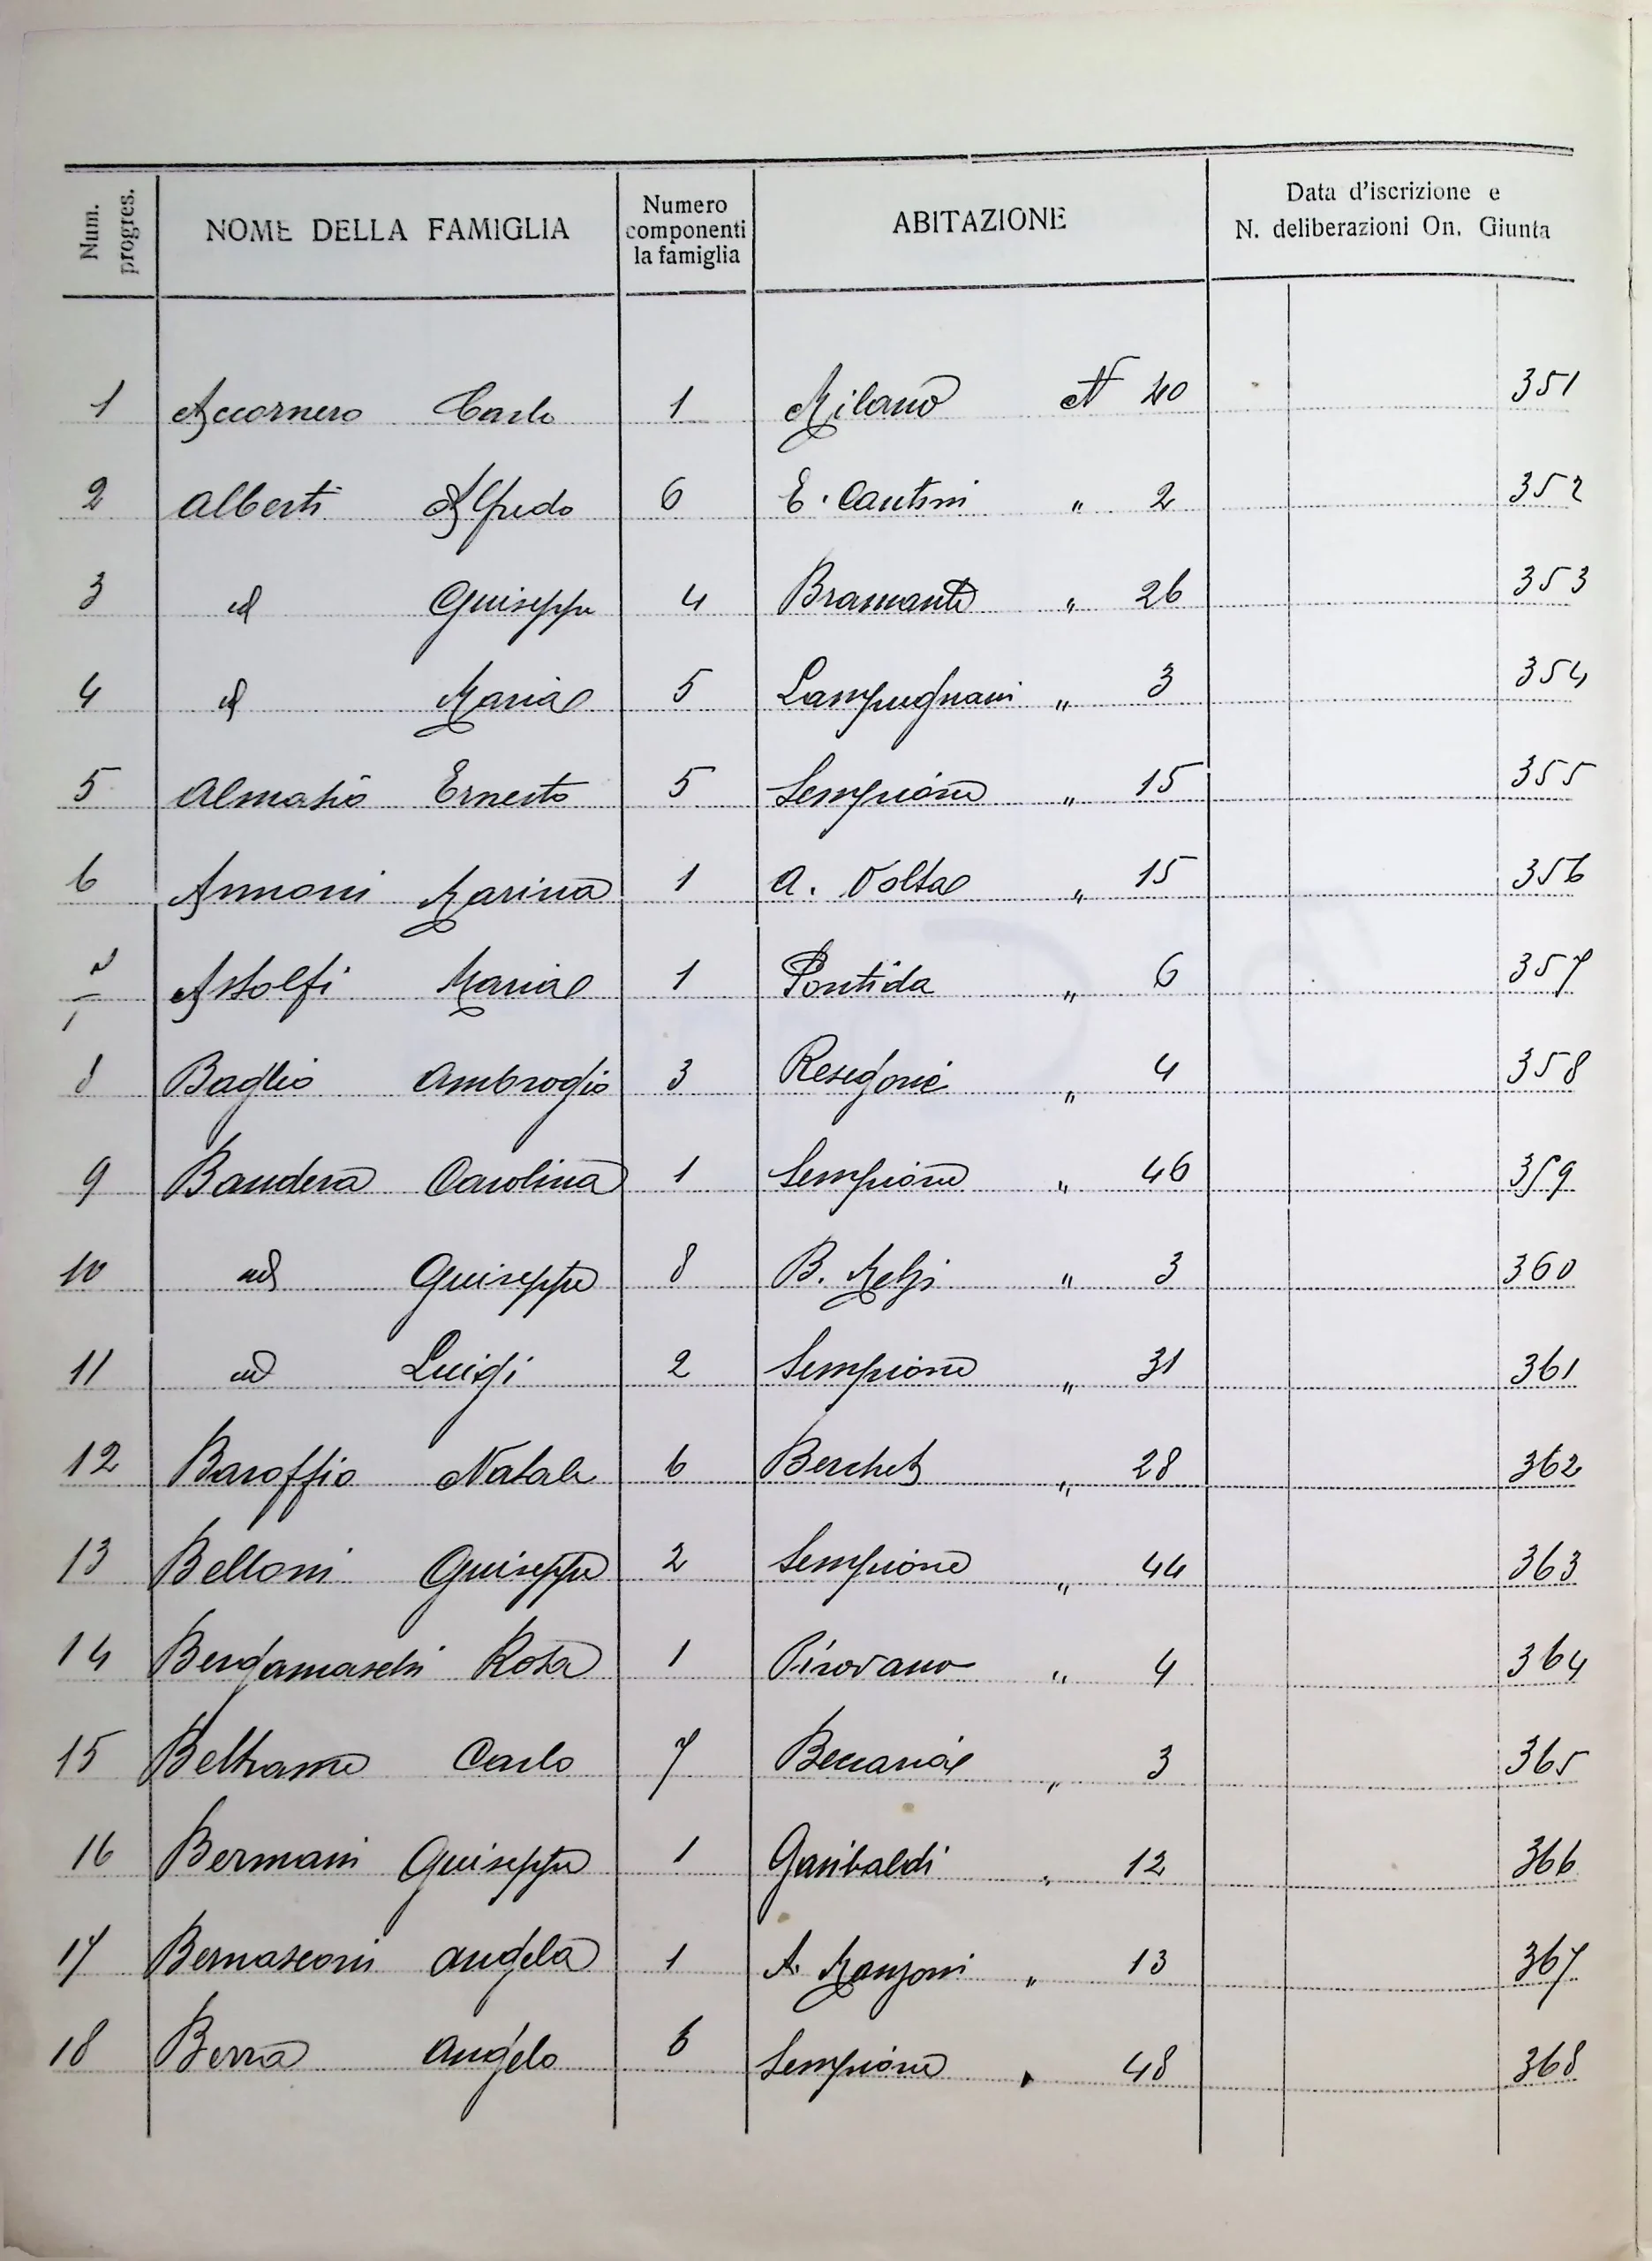 Num. progres.
NOME DELLA FAMIGLIA
Numero componenti la famiglia
ABITAZIONE
Data d'iscrizione e N. deliberazioni On. Giunta
1 Accornero Carlo 1 Milano N 40 351
2 Alberti Alfredo 6 E. Cantoni " 2 352
3 id Giuseppe 4 Bramante " 26 353
4 id Maria 5 Lampugnani " 3 354
5 Almasio Ernesto 5 Sempione " 15 355
6 Annoni Marina 1 A. Volta " 15 356
7 Astolfi Maria 1 Pontida " 6 357
8 Baglio Ambrogio 3 Resegone " 4 358
9 Bandera Carolina 1 Sempione " 46 359
10 id Giuseppe 8 B. Melzi " 3 360
11 id Luigi 2 Sempione " 31 361
12 Baroffio Natale 6 Berchet " 28 362
13 Belloni Giuseppe 2 Sempione " 44 363
14 Bergamaschi Rosa 1 Pirovano " 4 364
15 Beltrame Carlo 7 Beccaria " 3 365
16 Bermani Giuseppe 1 Garibaldi " 12 366
17 Bernasconi Angela 1 A. Manzoni " 13 367
18 Berra Angelo 6 Sempione " 48 368